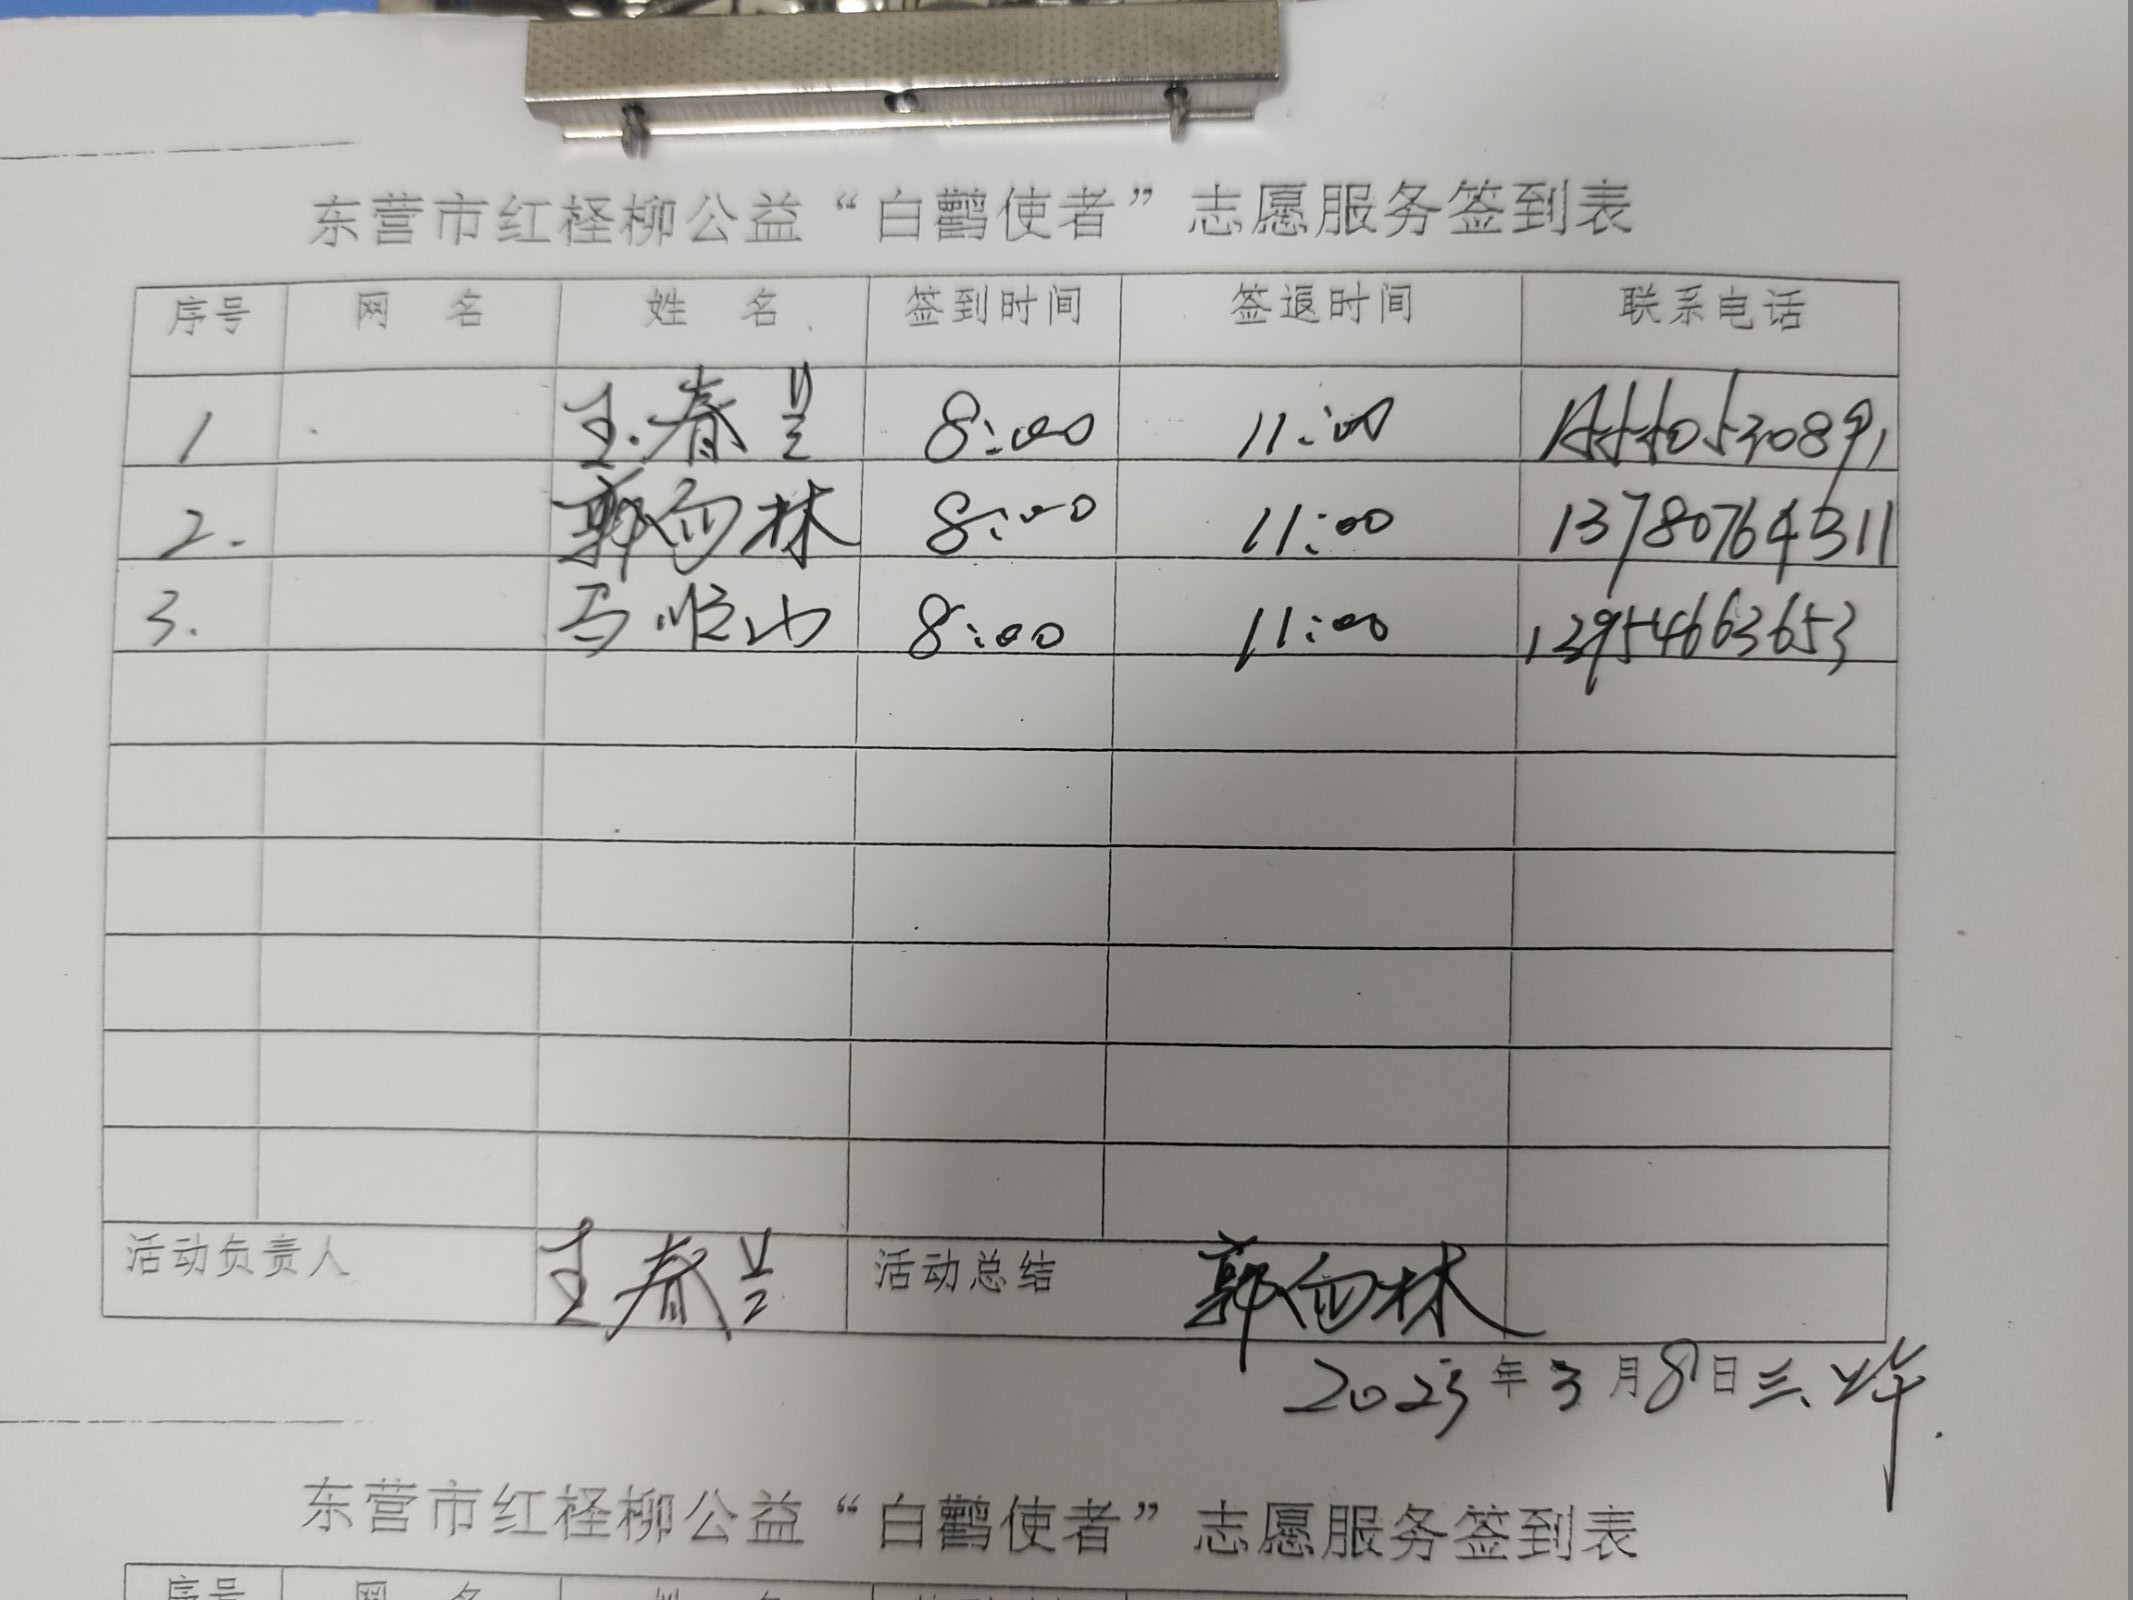 东营市红柽柳公益“白鹳使者”志愿服务签到表
序号 网 名 姓 名 签到时间 签退时间 联系电话
1 王春兰 8:00 11:00
2. 郭向林 8:00 11:00 13780764311
3. 马顺山 8:00 11:00 13954663653
活动负责人 王春兰 活动总结 郭向林
2023年3月8日 三、上午.
东营市红柽柳公益“白鹳使者”志愿服务签到表
序号 网 名